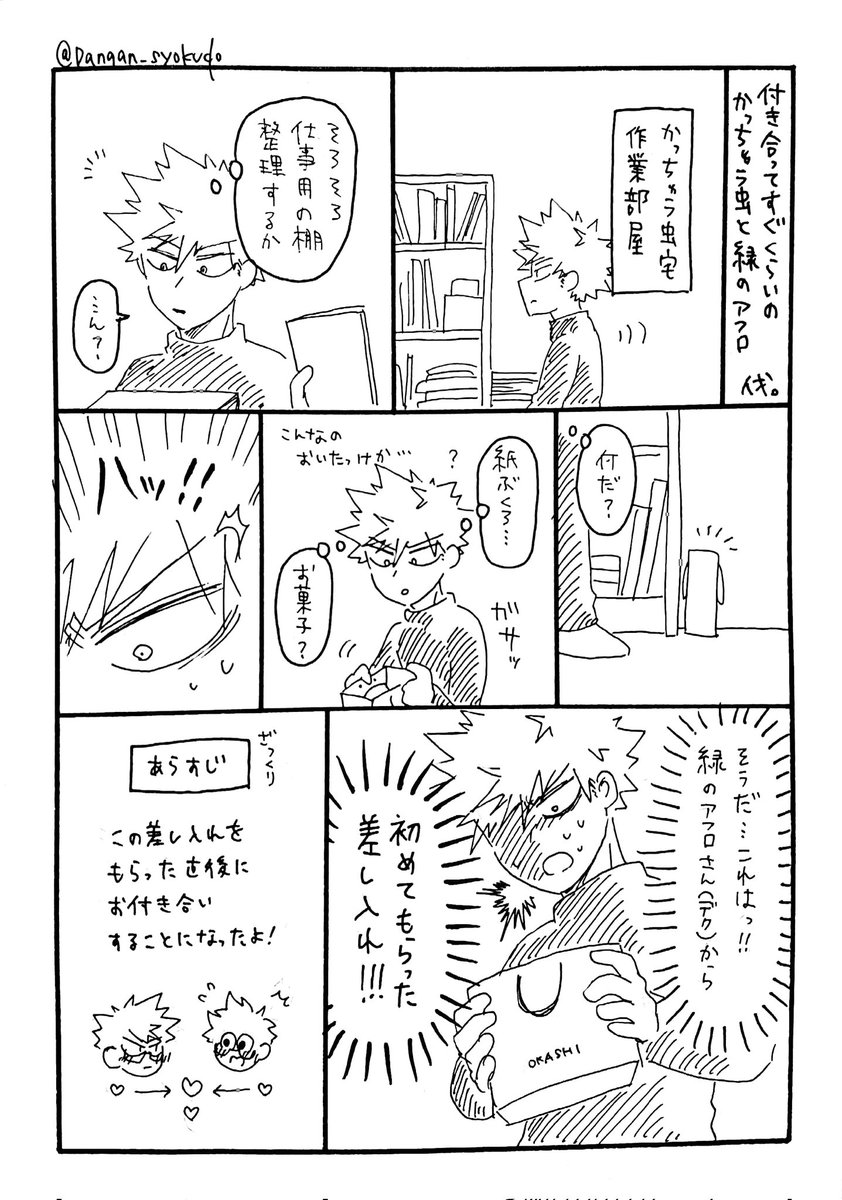 @Dangan_syokudo
付き合ってすぐくらいの
かっちゃう虫と緑のアフロ
伐。
かっちゃう虫宅
作業部屋
そろそろ
仕事用の棚
整理するか
…ん？
何だ？
紙ぶくろ…
こんなの
おいたっけか…
？
ガサッ
お菓子？
ハッ!!
そうだ…これはっ!!
緑のアフロさん(デク)から
初めてもらった
差し入れ!!!
OKASHI
ざっくり
あらすじ
この差し入れを
もらった直後に
お付き合い
することになったよ！